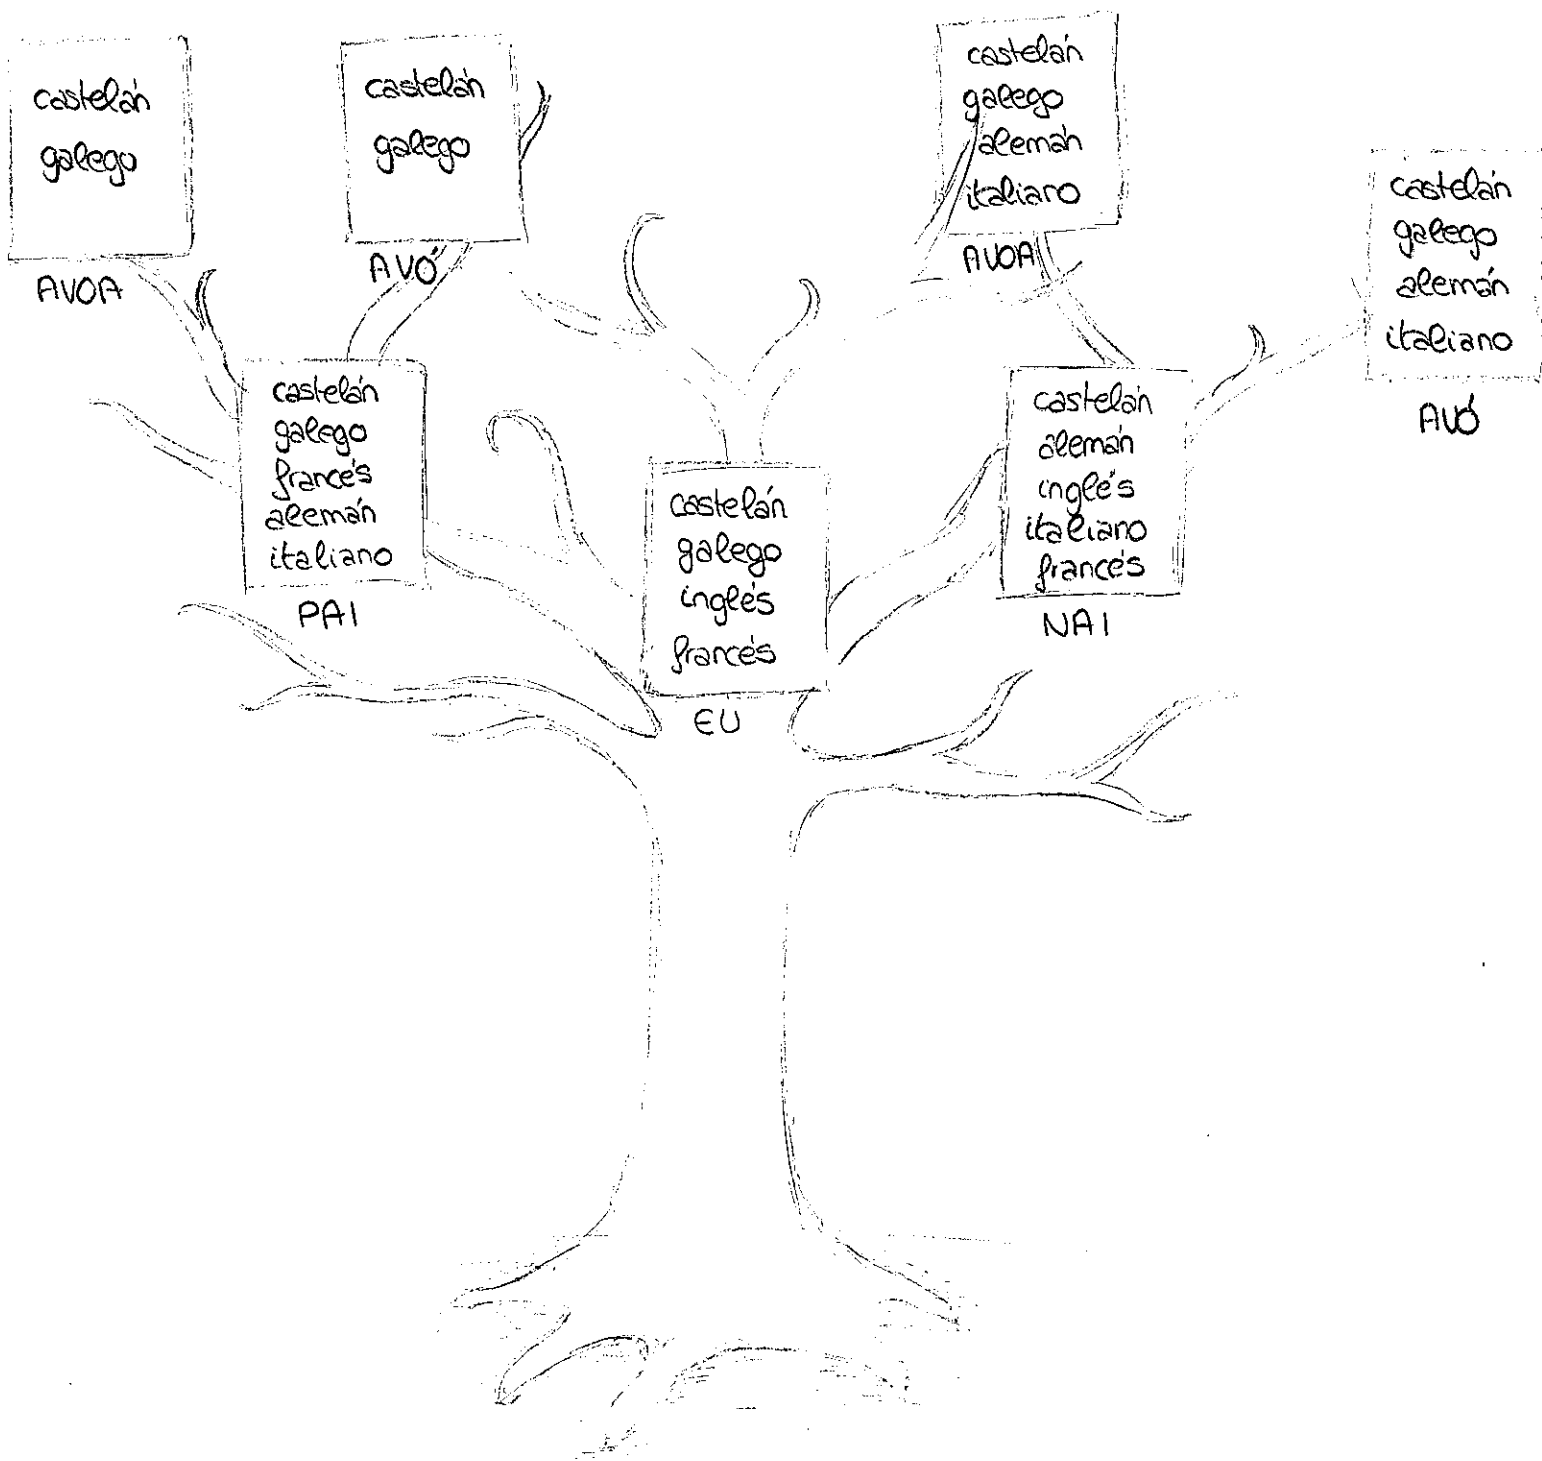 castelán
galego
AVOA
castelán
galego
AVÓ
castelán
galego
alemán
italiano
AVOA
castelán
galego
alemán
italiano
AVÓ
castelán
galego
francés
alemán
italiano
PAI
castelán
galego
inglés
francés
EU
castelán
alemán
inglés
italiano
francés
NAI